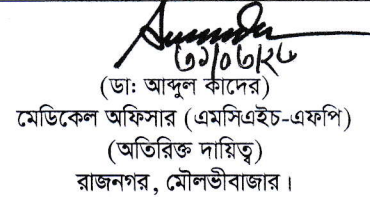 (ডা: আব্দুল কাদের)
মেডিকেল অফিসার (এমসিএইচ-এফপি)
(অতিরিক্ত দায়িত্ব)
রাজনগর, মৌলভীবাজার।